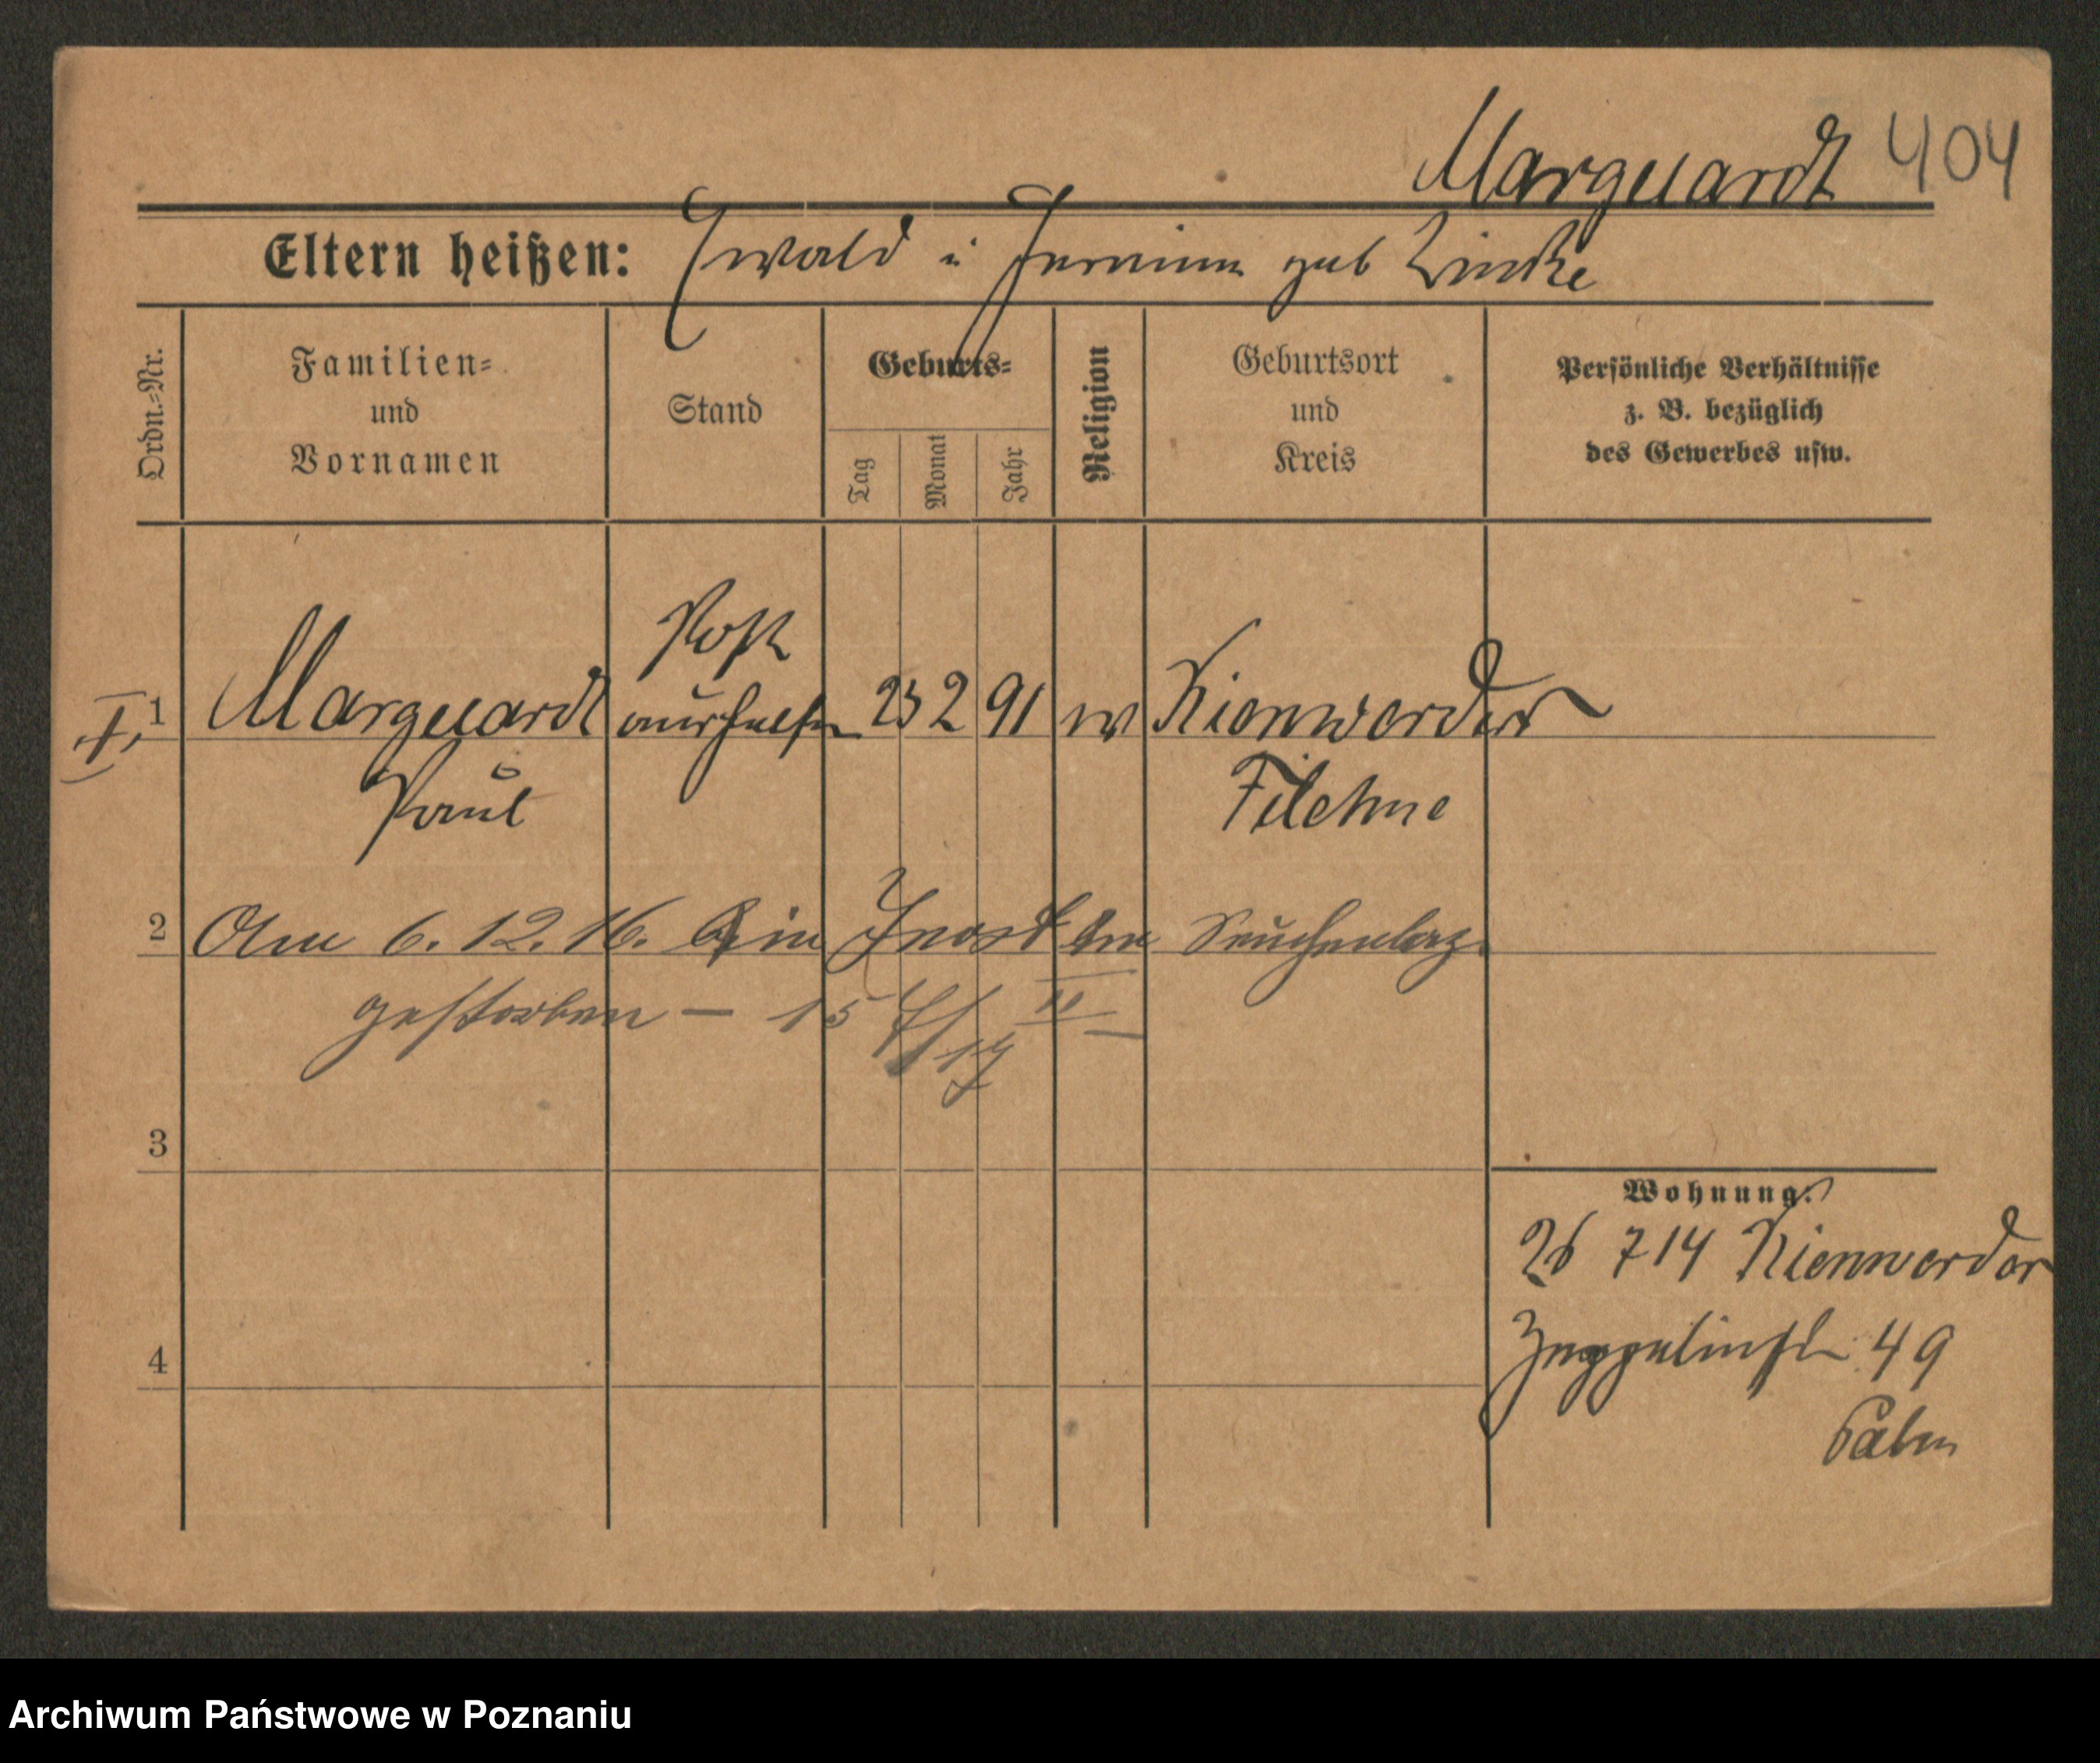 Marquardt 404
Eltern heißen: Ewald u Hermine geb Linke
Ordn.-Nr.
Familien-
und
Vornamen
Stand
Geburts-
Tag
Monat
Jahr
Religion
Geburtsort
und
Kreis
Persönliche Verhältnisse
z. B. bezüglich
des Gewerbes usw.
Post
1 Marquardt aushelfer 23 2 91 Kienwerder
Paul Filehne
2 Am 6. 12. 16. in Seuchenlaz.
gestorben — 15
17
3
Wohnung:
714 Kienwerder
Zeppelinstr 49
4
Archiwum Państwowe w Poznaniu